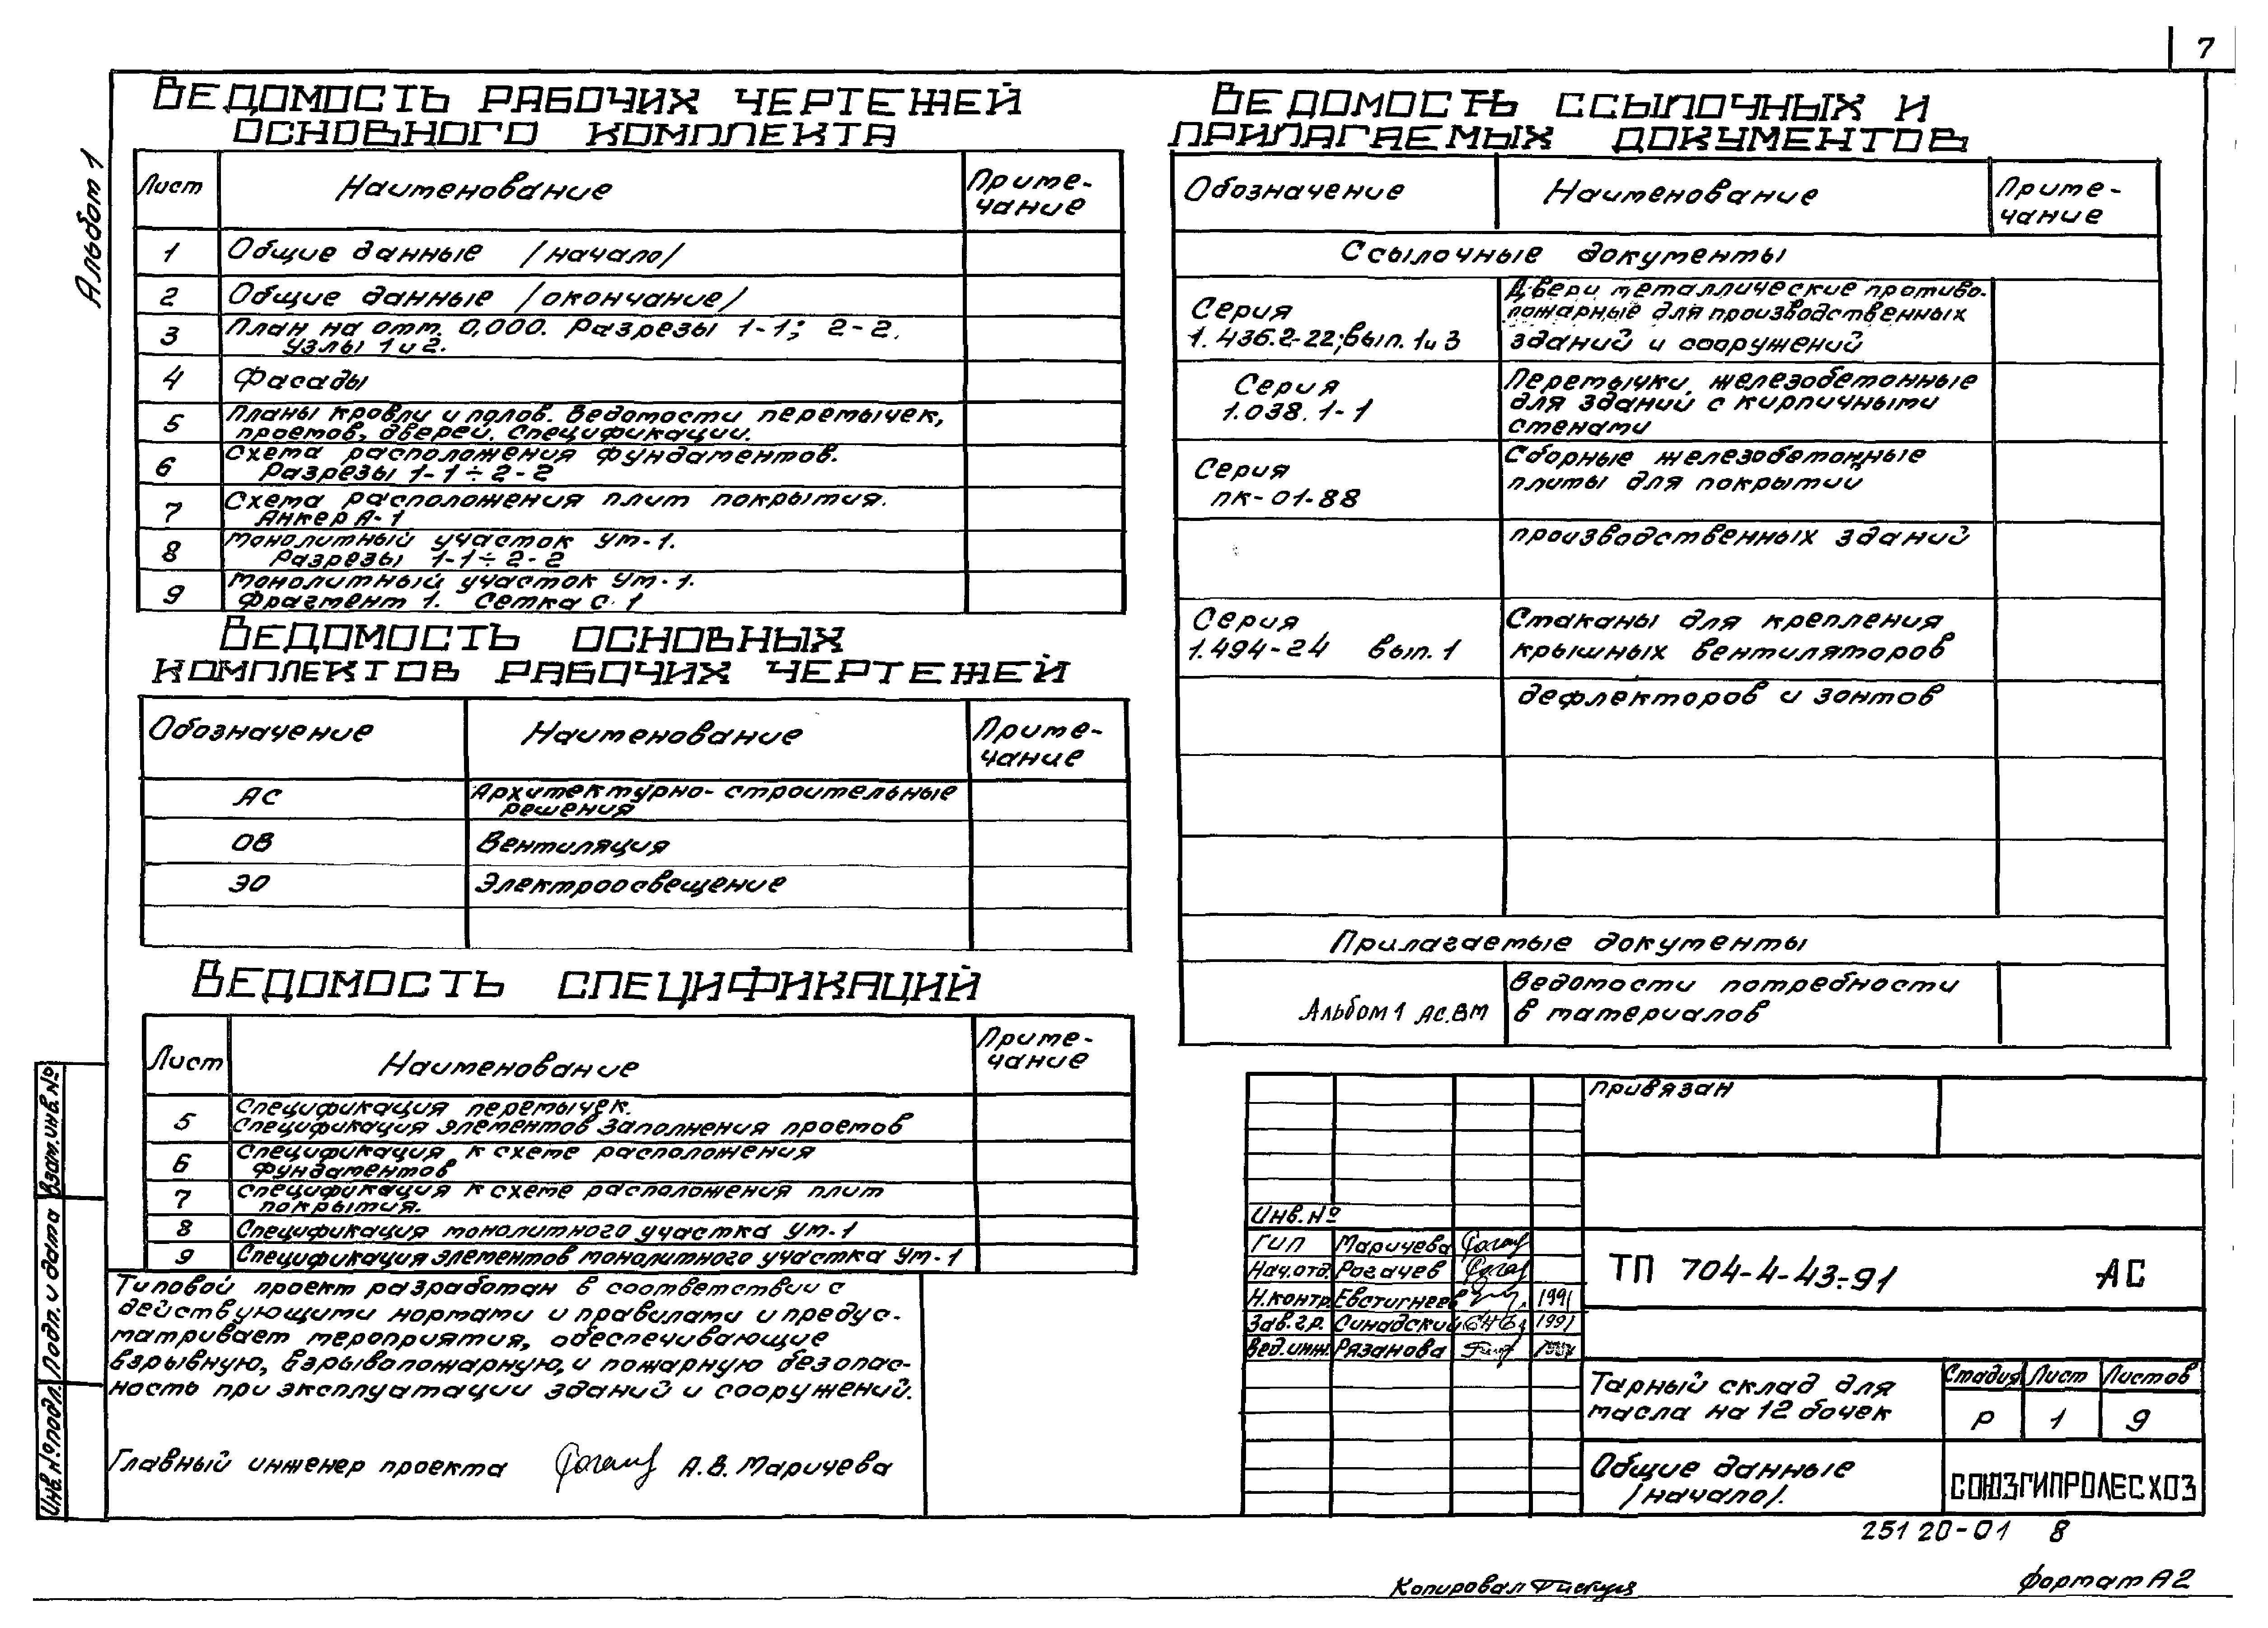 7
Альбом 1
Ведомость рабочих чертежей
основного комплекта
Лист Наименование Приме-
чание
1 Общие данные /начало/
2 Общие данные /окончание/
3 План на отм. 0,000. Разрезы 1-1; 2-2.
Узлы 1 и 2.
4 Фасады
5 Планы кровли и полов. Ведомости перемычек,
проемов, дверей. Спецификации.
6 Схема расположения фундаментов.
Разрезы 1-1÷2-2
7 Схема расположения плит покрытия.
Анкер А-1
8 Монолитный участок Ум-1.
Разрезы 1-1÷2-2
9 Монолитный участок Ум-1.
Фрагмент 1. Сетка С-1
Ведомость основных
комплектов рабочих чертежей
Обозначение Наименование Приме-
чание
АС Архитектурно-строительные
решения
ОВ Вентиляция
ЭО Электроосвещение
Ведомость спецификаций
Лист Наименование Приме-
чание
5 Спецификация перемычек.
Спецификация элементов заполнения проемов
6 Спецификация к схеме расположения
фундаментов
7 Спецификация к схеме расположения плит
покрытия.
8 Спецификация монолитного участка Ум-1
9 Спецификация элементов монолитного участка Ум-1
Типовой проект разработан в соответствии с
действующими нормами и правилами и предус-
матривает мероприятия, обеспечивающие
взрывную, взрывопожарную, и пожарную безопас-
ность при эксплуатации зданий и сооружений.
Главный инженер проекта А.В. Маричева
Ведомость ссылочных и
прилагаемых документов
Обозначение Наименование Приме-
чание
Ссылочные документы
Серия
1.436.2-22; вып. 1 и 3
Двери металлические противо-
пожарные для производственных
зданий и сооружений
Серия
1.038.1-1
Перемычки железобетонные
для зданий с кирпичными
стенами
Серия
ПК-01-88
Сборные железобетонные
плиты для покрытий
производственных зданий
Серия
1.494-24 вып. 1
Стаканы для крепления
крышных вентиляторов
дефлекторов и зонтов
Прилагаемые документы
Альбом 1 АС.ВМ
Ведомости потребности
в материалов
Привязан
Инв. №
ГИП Маричева
Нач.отд. Рогачев
Н.контр. Евстигнеев 1991
Зав.гр. Синадский 1991
Вед.инж. Рязанова 1991
ТП 704-4-43-91 АС
Тарный склад для
масла на 12 бочек
Стадия Лист Листов
Р 1 9
Общие данные
/начало/.
СОЮЗГИПРОЛЕСХОЗ
Взам.инв.№
Подп. и дата
Инв.№подл.
25120-01 8
Копировал
Формат А2